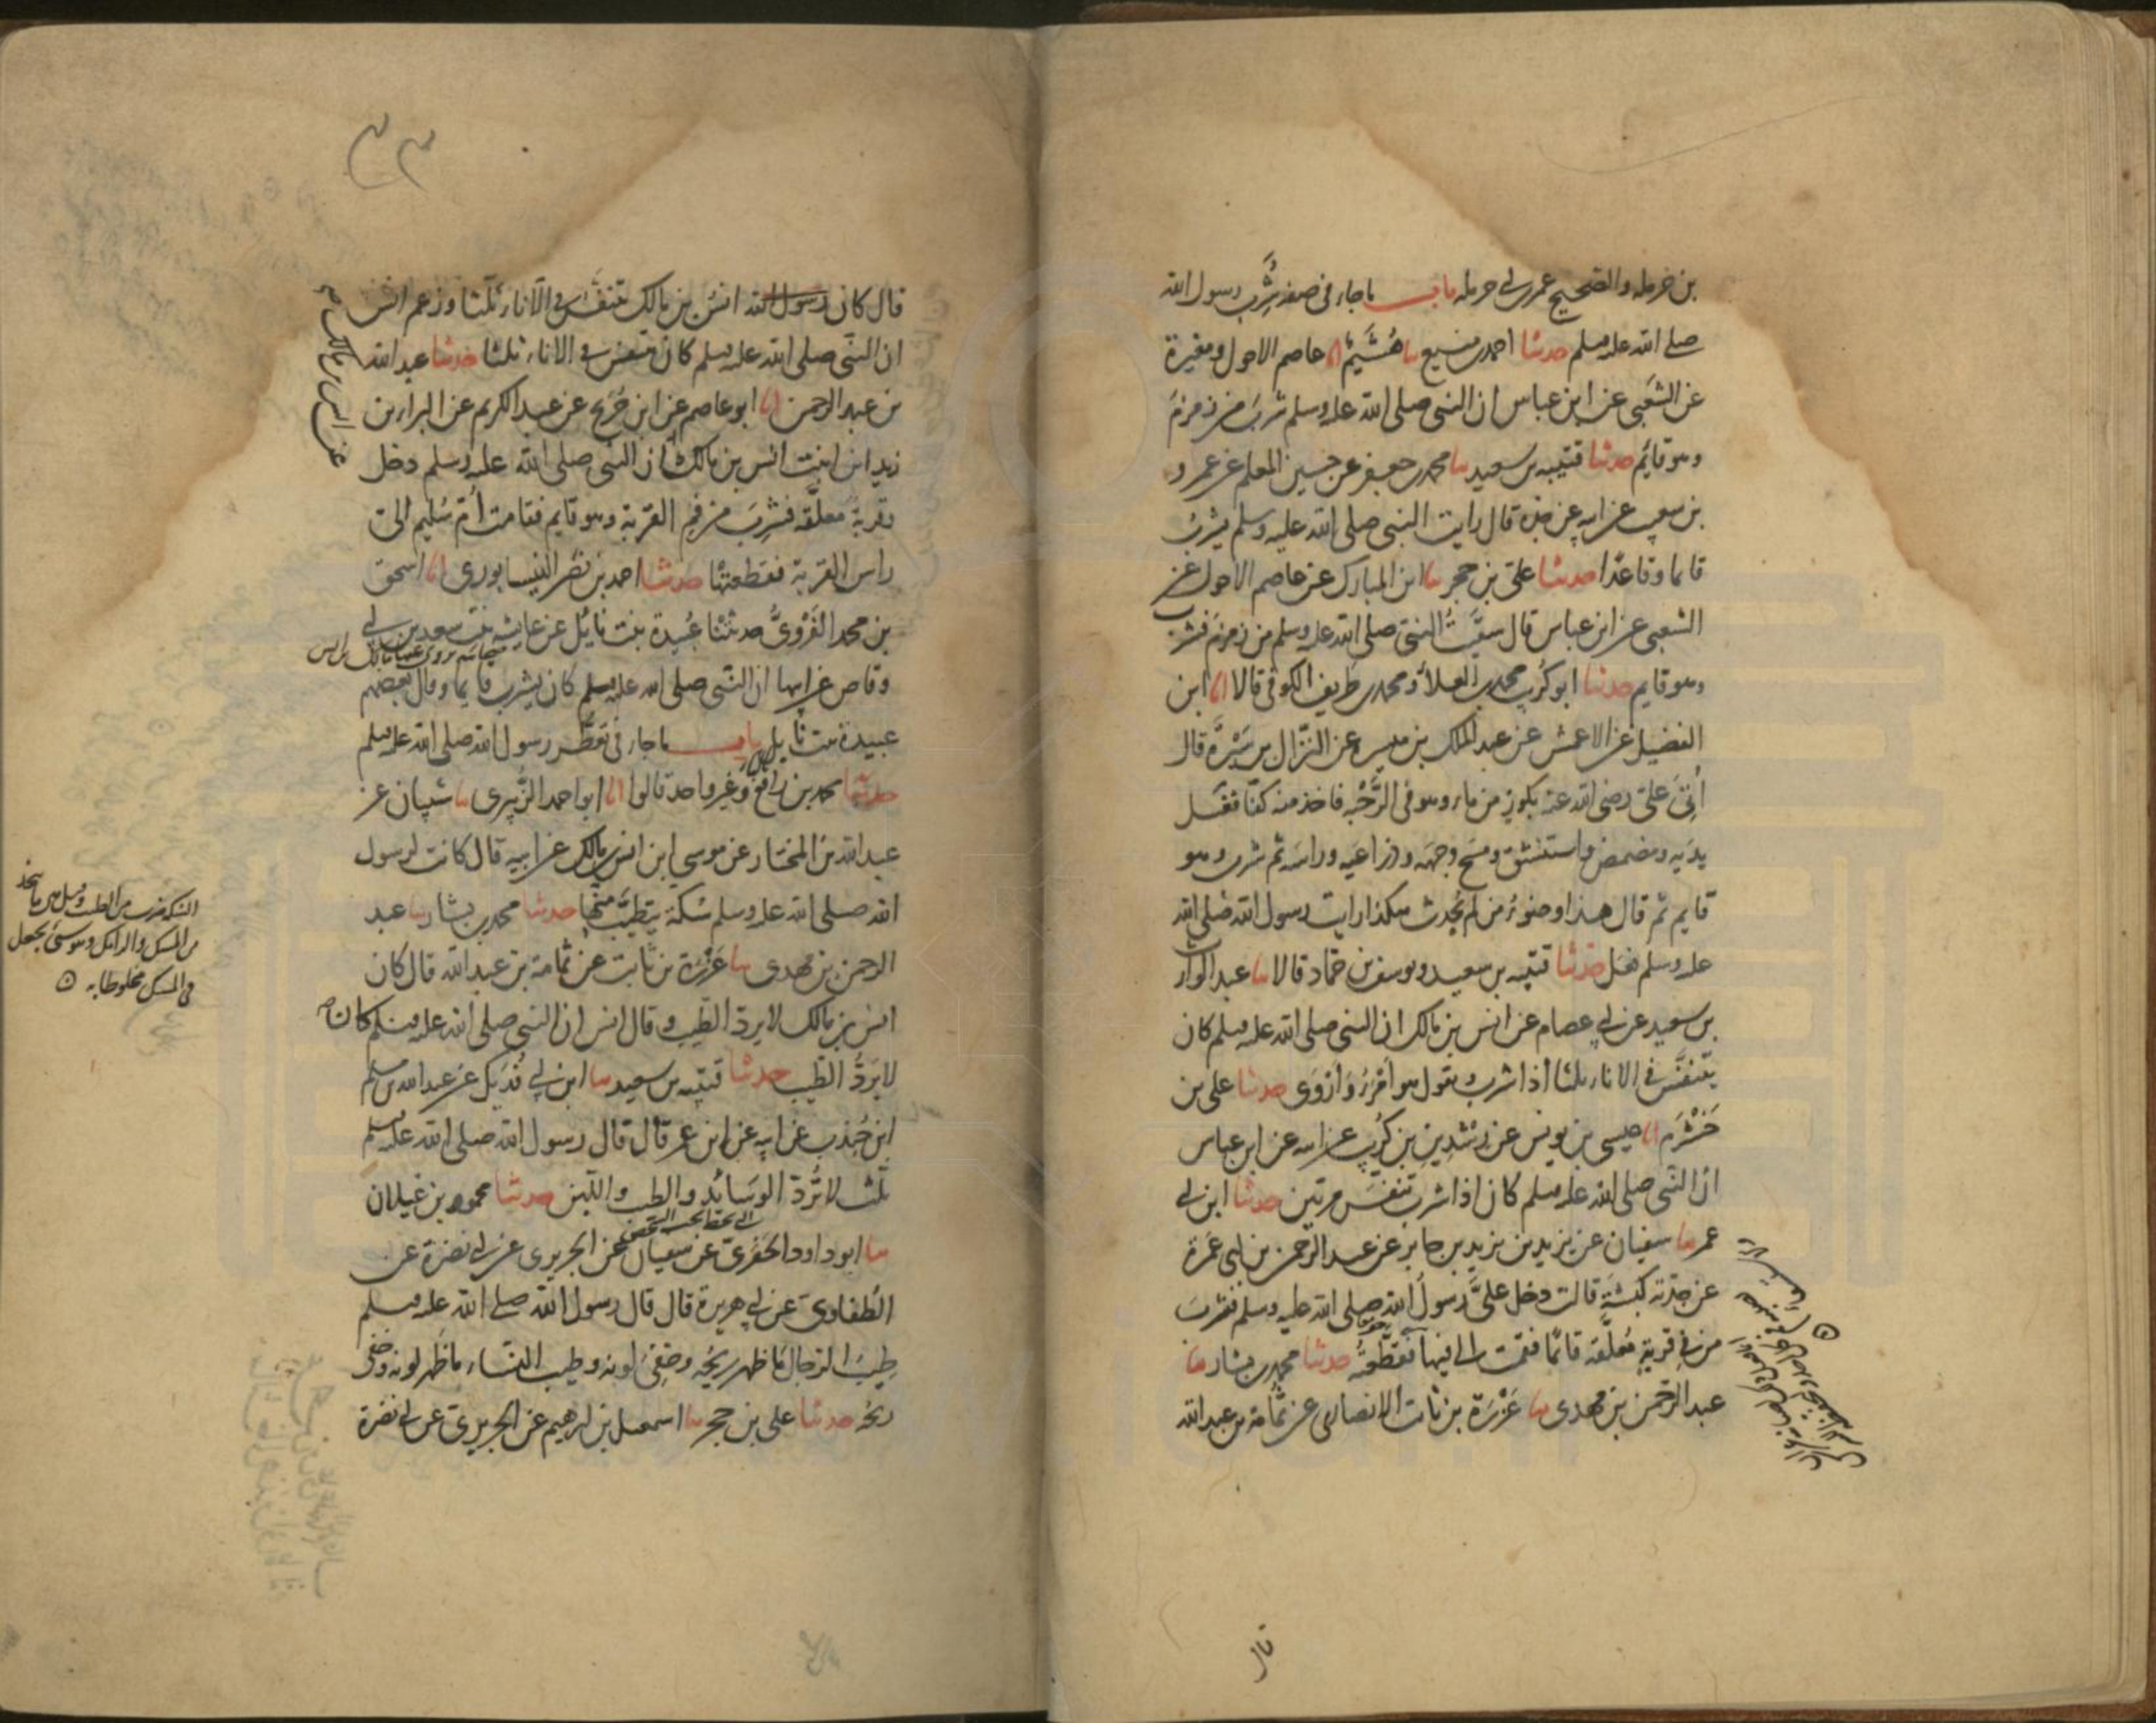 بن حرمله والصحيح عمر بن ابي حرمله باب ماجاء في صفة شُرب رسول الله
صلى الله عليه وسلم حدثنا احمد بن منيع نا هُشَيْمٌ انا عاصم الاحول ومغيرة
عن الشعبي عن ابن عباس ان النبي صلى الله عليه وسلم شربَ من زمزمَ
وهو قايم حدثنا قتيبه بن سعيد نا محمد بن جعفر عن حسين المعلم عن عمرو
بن شعيب عن ابيه عن جده قال رايت النبي صلى الله عليه وسلم يشربُ
قايما وقاعدًا حدثنا علي بن حجر نا ابن المبارك عن عاصم الاحول عن
الشعبي عن ابن عباس قال سقيتُ النبي صلى الله عليه وسلم من زمزمَ فشرب
وهو قايم حدثنا ابو كُريب محمد بن العلاء ومحمد بن طريف الكوفي قالا انا ابن
الفضيل عن الاعمش عن عبد الملك بن ميسرة عن النزّال بن سَبْرَةَ قال
أُتِيَ عليّ رضي الله عنه بكوزٍ من ماء وهو في الرَّحْبه فاخذ منه كفّا فغسل
يديه ومضمض واستنشق ومسح وجهه وذراعيه وراسه ثم شرب وهو
قايم ثم قال هذا وضوءُ من لم يُحدث هكذا رايت رسول الله صلى الله
عليه وسلم فعل حدثنا قتيبه بن سعيد ويوسف بن حماد قالا نا عبد الوارث
بن سعيد عن ابي عصام عن انس بن مالك ان النبي صلى الله عليه وسلم كان
يتنفَّس في الاناء ثلثا اذا شرب ويقول هو أَمْرَءُ وَأَرْوَى حدثنا علي بن
خَشْرَم انا عيسى بن يونس عن رشدِين بن كُريب عن ابيه عن ابن عباس
ان النبي صلى الله عليه وسلم كان اذا شرب تنفّسَ مرتين حدثنا ابن ابي
عمر نا سفيان عن يزيد بن يزيد بن جابر عن عبد الرحمن بن ابي عَمْرة
عن جدّته كبشةَ قالت دخل عليَّ رسول الله صلى الله عليه وسلم فشربَ
من في قربةٍ مُعلَّقة قائمًا فقمت الى فيها فقطعتُه حدثنا محمد بن بشار نا
عبد الرحمن بن مهدى نا عَزْرَة بن ثابت الانصارى عن ثُمامة بن عبد الله
قال
قال كان رسول الله انسُ بن مالك يتنفَّس في الاناء ثلثا وزعم انس
ان النبي صلى الله عليه وسلم كان يتنفس في الاناء ثلثا حدثنا عبد الله
بن عبد الرحمن انا ابو عاصم عن ابن جُريج عن عبد الكريم عن البراء بن
عن انس بن مالك
زيد ابن ابنت انس بن مالك ان النبي صلى الله عليه وسلم دخل
وقربةٌ معلَّقة فشربَ من فم القربة وهو قايم فقامت أم سُليم الى
راس القربة فقطعتها حدثنا احمد بن نصر النيسابورى انا اسحق
بن محمد الفَرْوِيّ حدثتنا عُبيدة بنت نايل عن عايشه بنت سعد بن ابي
وقاص عن ابيها ان النبي صلى الله عليه وسلم كان يشرب قايما وقال بعضهم
عبيدة بنت نابل باب ماجاء في تعطّر رسول الله صلى الله عليه وسلم
حدثنا محمد بن رافع وغير واحد قالوا انا ابو احمد الزُّبيرى نا شيبان عن
عبد الله بن المختار عن موسى ابن انس بن مالك عن ابيه قال كانت لرسول
الله صلى الله عليه وسلم سُكّة يتطيّب منها حدثنا محمد بن بشار نا عبد
الرحمن بن مهدى نا عَزْرَة بن ثابت عن ثُمامة بن عبد الله قال كان
انس بن مالك لا يردّ الطّيب وقال انس ان النبي صلى الله عليه وسلم كان
لا يَردُّ الطّيب حدثنا قتيبه بن سعيد نا ابن ابي فُدَيك عن عبد الله بن مسلم
ابن جُندب عن ابيه عن ابن عمر قال قال رسول الله صلى الله عليه وسلم
ثلث لا تُردّ الوسَائد والطيب واللّبن حدثنا محمود بن غيلان
نا ابو داود الحَفَرىّ عن سفيان عن الجريرى عن ابي نضرة عن
الطُفاوىّ عن ابي هريرة قال قال رسول الله صلى الله عليه وسلم
طِيبُ الرّجال ما ظهر ريحُه وخفيَ لونه وطيب النساء ما ظهر لونه وخفي
ريحُه حدثنا علي بن حجر نا اسمعيل بن ابرهيم عن الجريرىّ عن ابي نضرة
السكة ضرب من الطيب وقيل هي ما يتخذ
من المسك والرامك وهو شئ يجعل
في المسك مخلوطا به